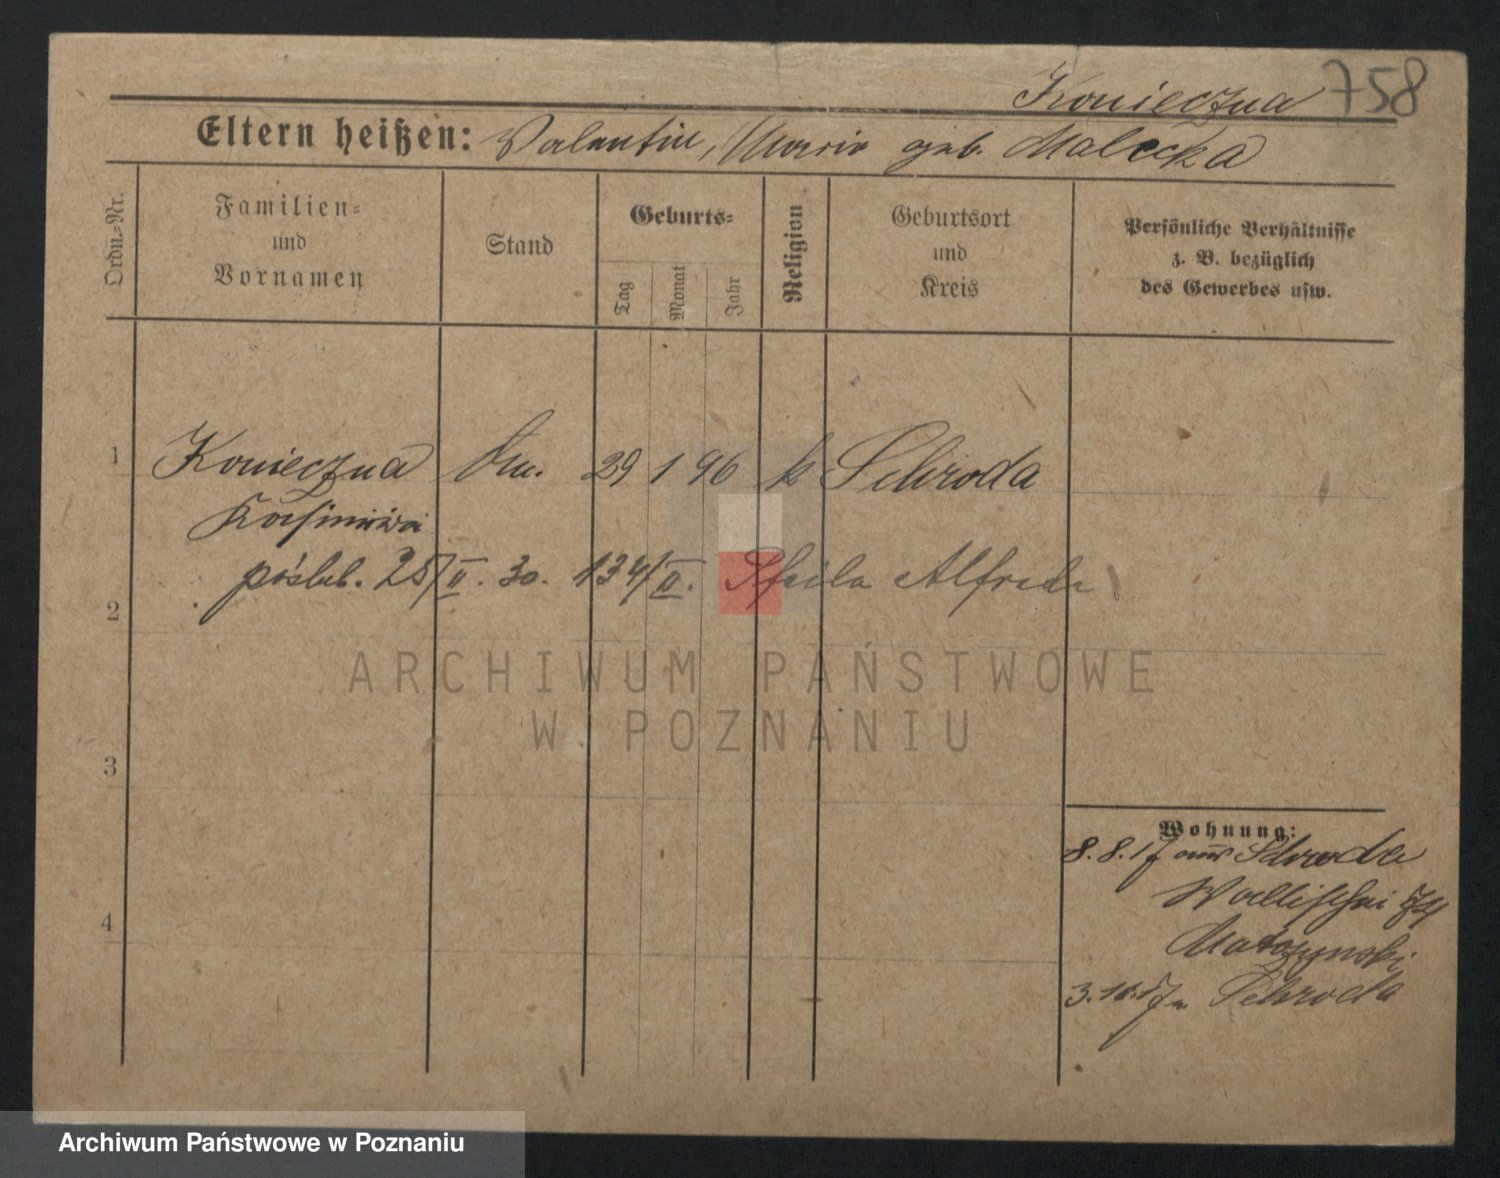 Konieczna 758
Eltern heißen: Valentin, Maria geb. Malecka
Ordn.-Nr.
Familien-
und
Vornamen
Stand
Geburts-
Tag
Monat
Jahr
Religion
Geburtsort
und
Kreis
Persönliche Verhältnisse
z. B. bezüglich
des Gewerbes usw.
1 Konieczna 29 1 96 k Schroda
Kasimira
póślub. 25/II. 30. 134/II. Pfeila Alfreda
2
3
4
ARCHIWUM PAŃSTWOWE
W POZNANIU
Wohnung:
8. 8. 17 aus Schroda
Wallischei 74
Matoszynski
3. 10. 17 n. Schroda
Archiwum Państwowe w Poznaniu